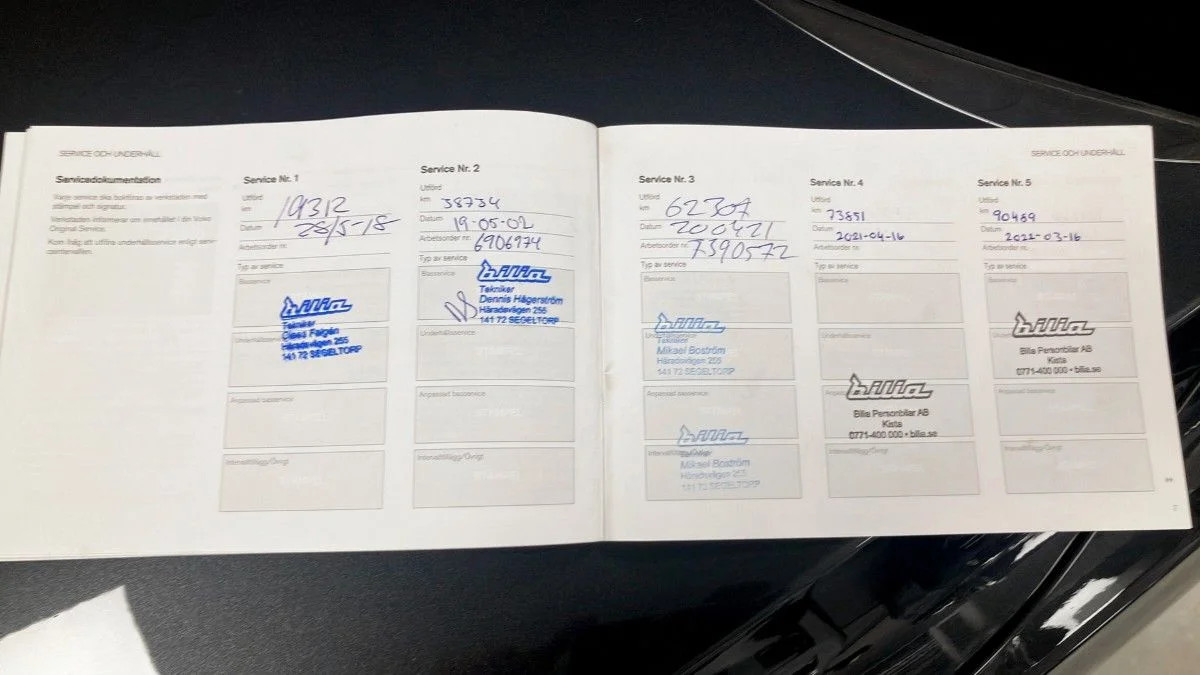 SERVICE OCH UNDERHÅLL
Servicedokumentation
Varje service ska bokföras av verkstaden med
stämpel och signatur.
Verkstaden informerar om innehållet i din Volvo
Original Service.
Kom ihåg att utföra underhållsservice enligt
Service Nr. 1
Utförd
km 19312
Datum 28/5-18
Arbetsorder nr.
Typ av service
Basservice
bilia
Tekniker
Claes
Häradsvägen 255
141 72 SEGELTORP
Anpassad basservice
Intervalltillägg/Övrigt
Service Nr. 2
Utförd
km 38734
Datum 19-05-02
Arbetsorder nr. 6906974
Typ av service
Basservice
bilia
Tekniker
Dennis Hägerström
Häradsvägen 255
141 72 SEGELTORP
Underhållsservice
Anpassad basservice
Intervalltillägg/Övrigt
SERVICE OCH UNDERHÅLL
Service Nr. 3
Utförd
km 62307
Datum 200421
Arbetsorder nr. 7390572
Typ av service
Basservice
bilia
Underhållsservice
Tekniker
Mikael Boström
Häradsvägen 255
141 72 SEGELTORP
Anpassad basservice
bilia
Intervalltillägg/Övrigt
Tekniker
Mikael Boström
Häradsvägen 255
141 72 SEGELTORP
Service Nr. 4
Utförd
km 73851
Datum 2021-04-16
Arbetsorder nr.
Typ av service
Basservice
Underhållsservice
bilia
Bilia Personbilar AB
Kista
0771-400 000 • bilia.se
Intervalltillägg/Övrigt
Service Nr. 5
Utförd
km 90489
Datum 2022-03-16
Arbetsorder nr.
Typ av service
Basservice
bilia
Bilia Personbilar AB
Kista
0771-400 000 • bilia.se
Anpassad basservice
Intervalltillägg/Övrigt